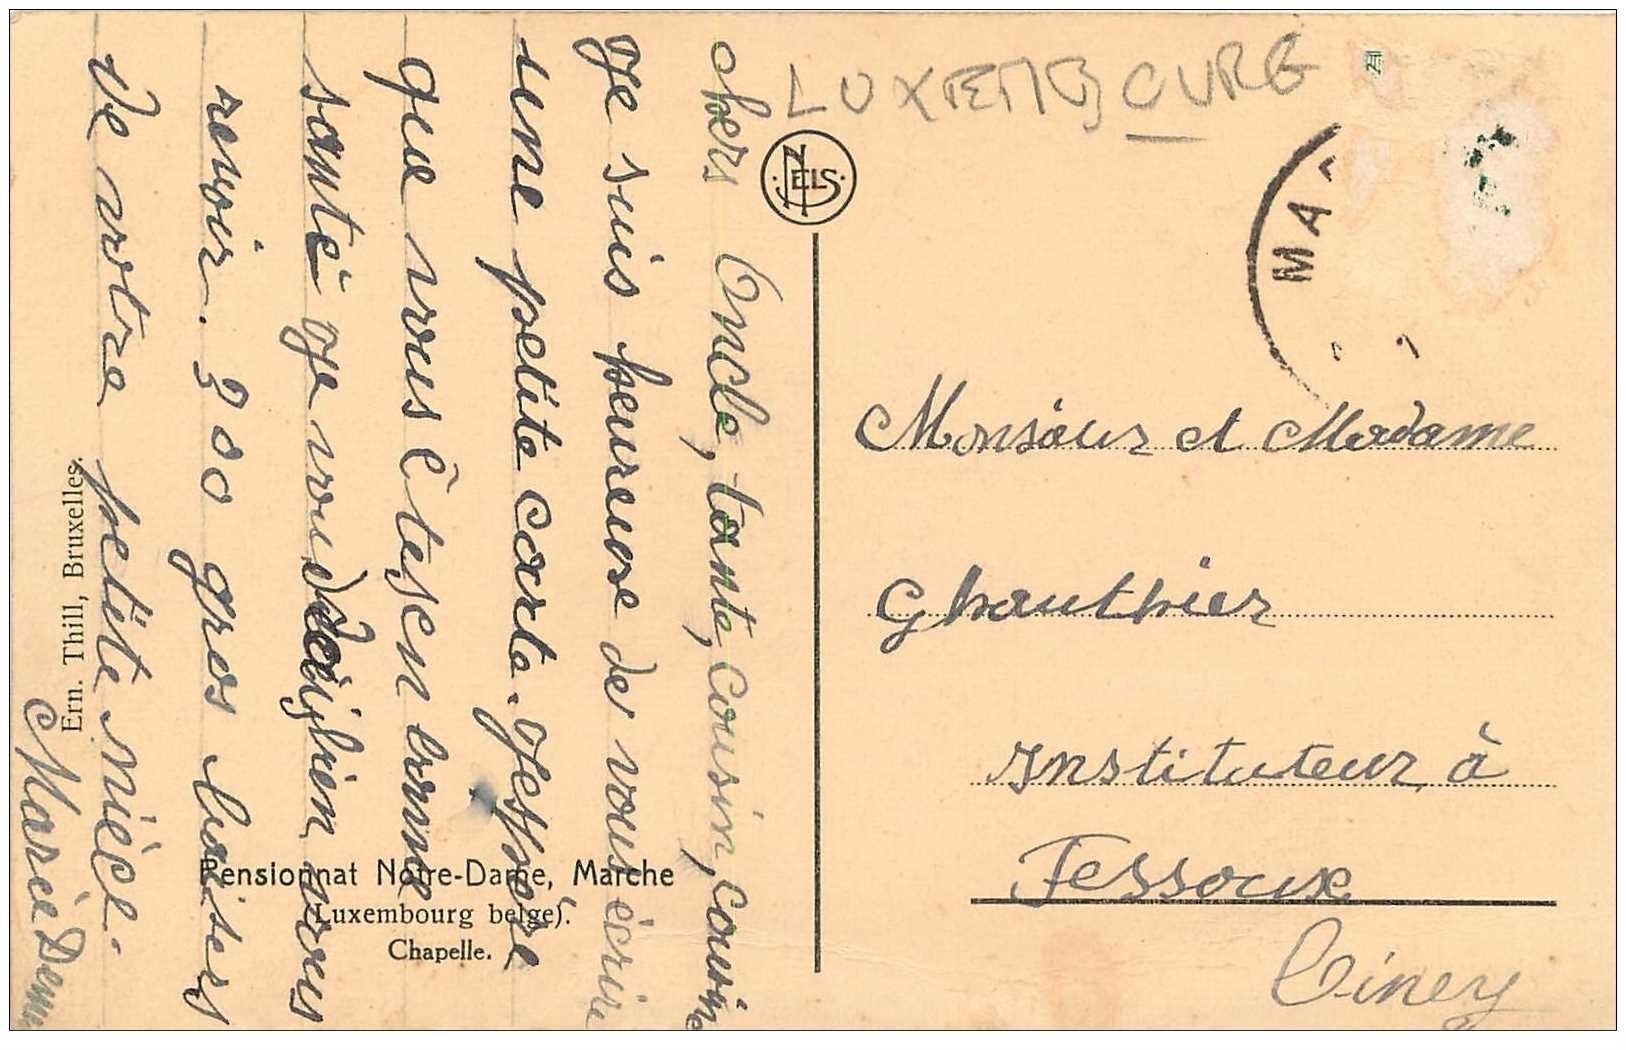 LUXEMBOURG
NELS
MA
chers Oncle, tante, cousin, cousine
Je suis heureuse de vous écrire
une petite carte. J'espère
que vous êtes en bonne
santé je voudrais bien vous
revoir. 300 gros baisers
De votre petite nièce.
Marie
Ern. Thill, Bruxelles.
Pensionnat Notre-Dame, Marche
(Luxembourg belge).
Chapelle.
Monsieur et Madame
Ghauthier
Instituteur à
Fessoux
Ciney